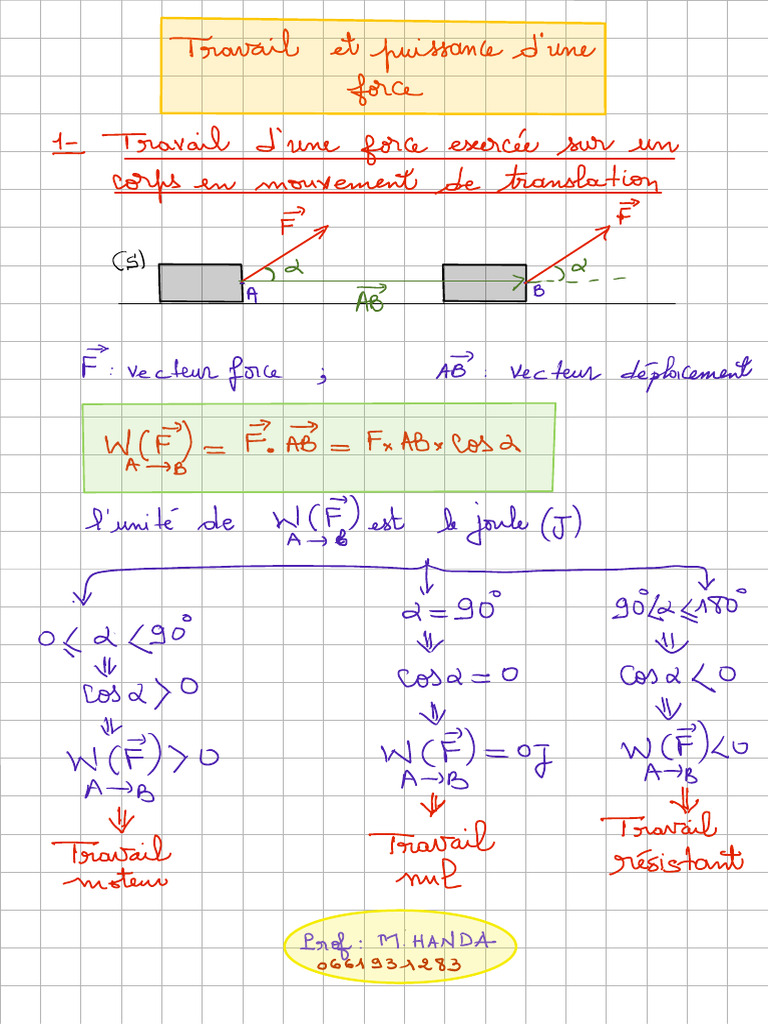 Travail et puissance d'une
force
1- Travail d'une force exercée sur un
corps en mouvement de translation
(S) F⃗ α A AB⃗ F⃗ α B
F⃗ : vecteur force ; AB⃗ : vecteur déplacement
W(F⃗) = F⃗ . AB⃗ = F × AB × cos α
A → B
l'unité de W(F⃗) est le joule (J)
A → B
0 ≤ α < 90°
⇓
cos α > 0
⇓
W(F⃗) > 0
A → B
⇓
Travail
moteur
α = 90°
⇓
cos α = 0
⇓
W(F⃗) = 0J
A → B
⇓
Travail
nul
90° < α ≤ 180°
⇓
cos α < 0
⇓
W(F⃗) < 0
A → B
⇓
Travail
résistant
Prof : M. HANDA
0661931283